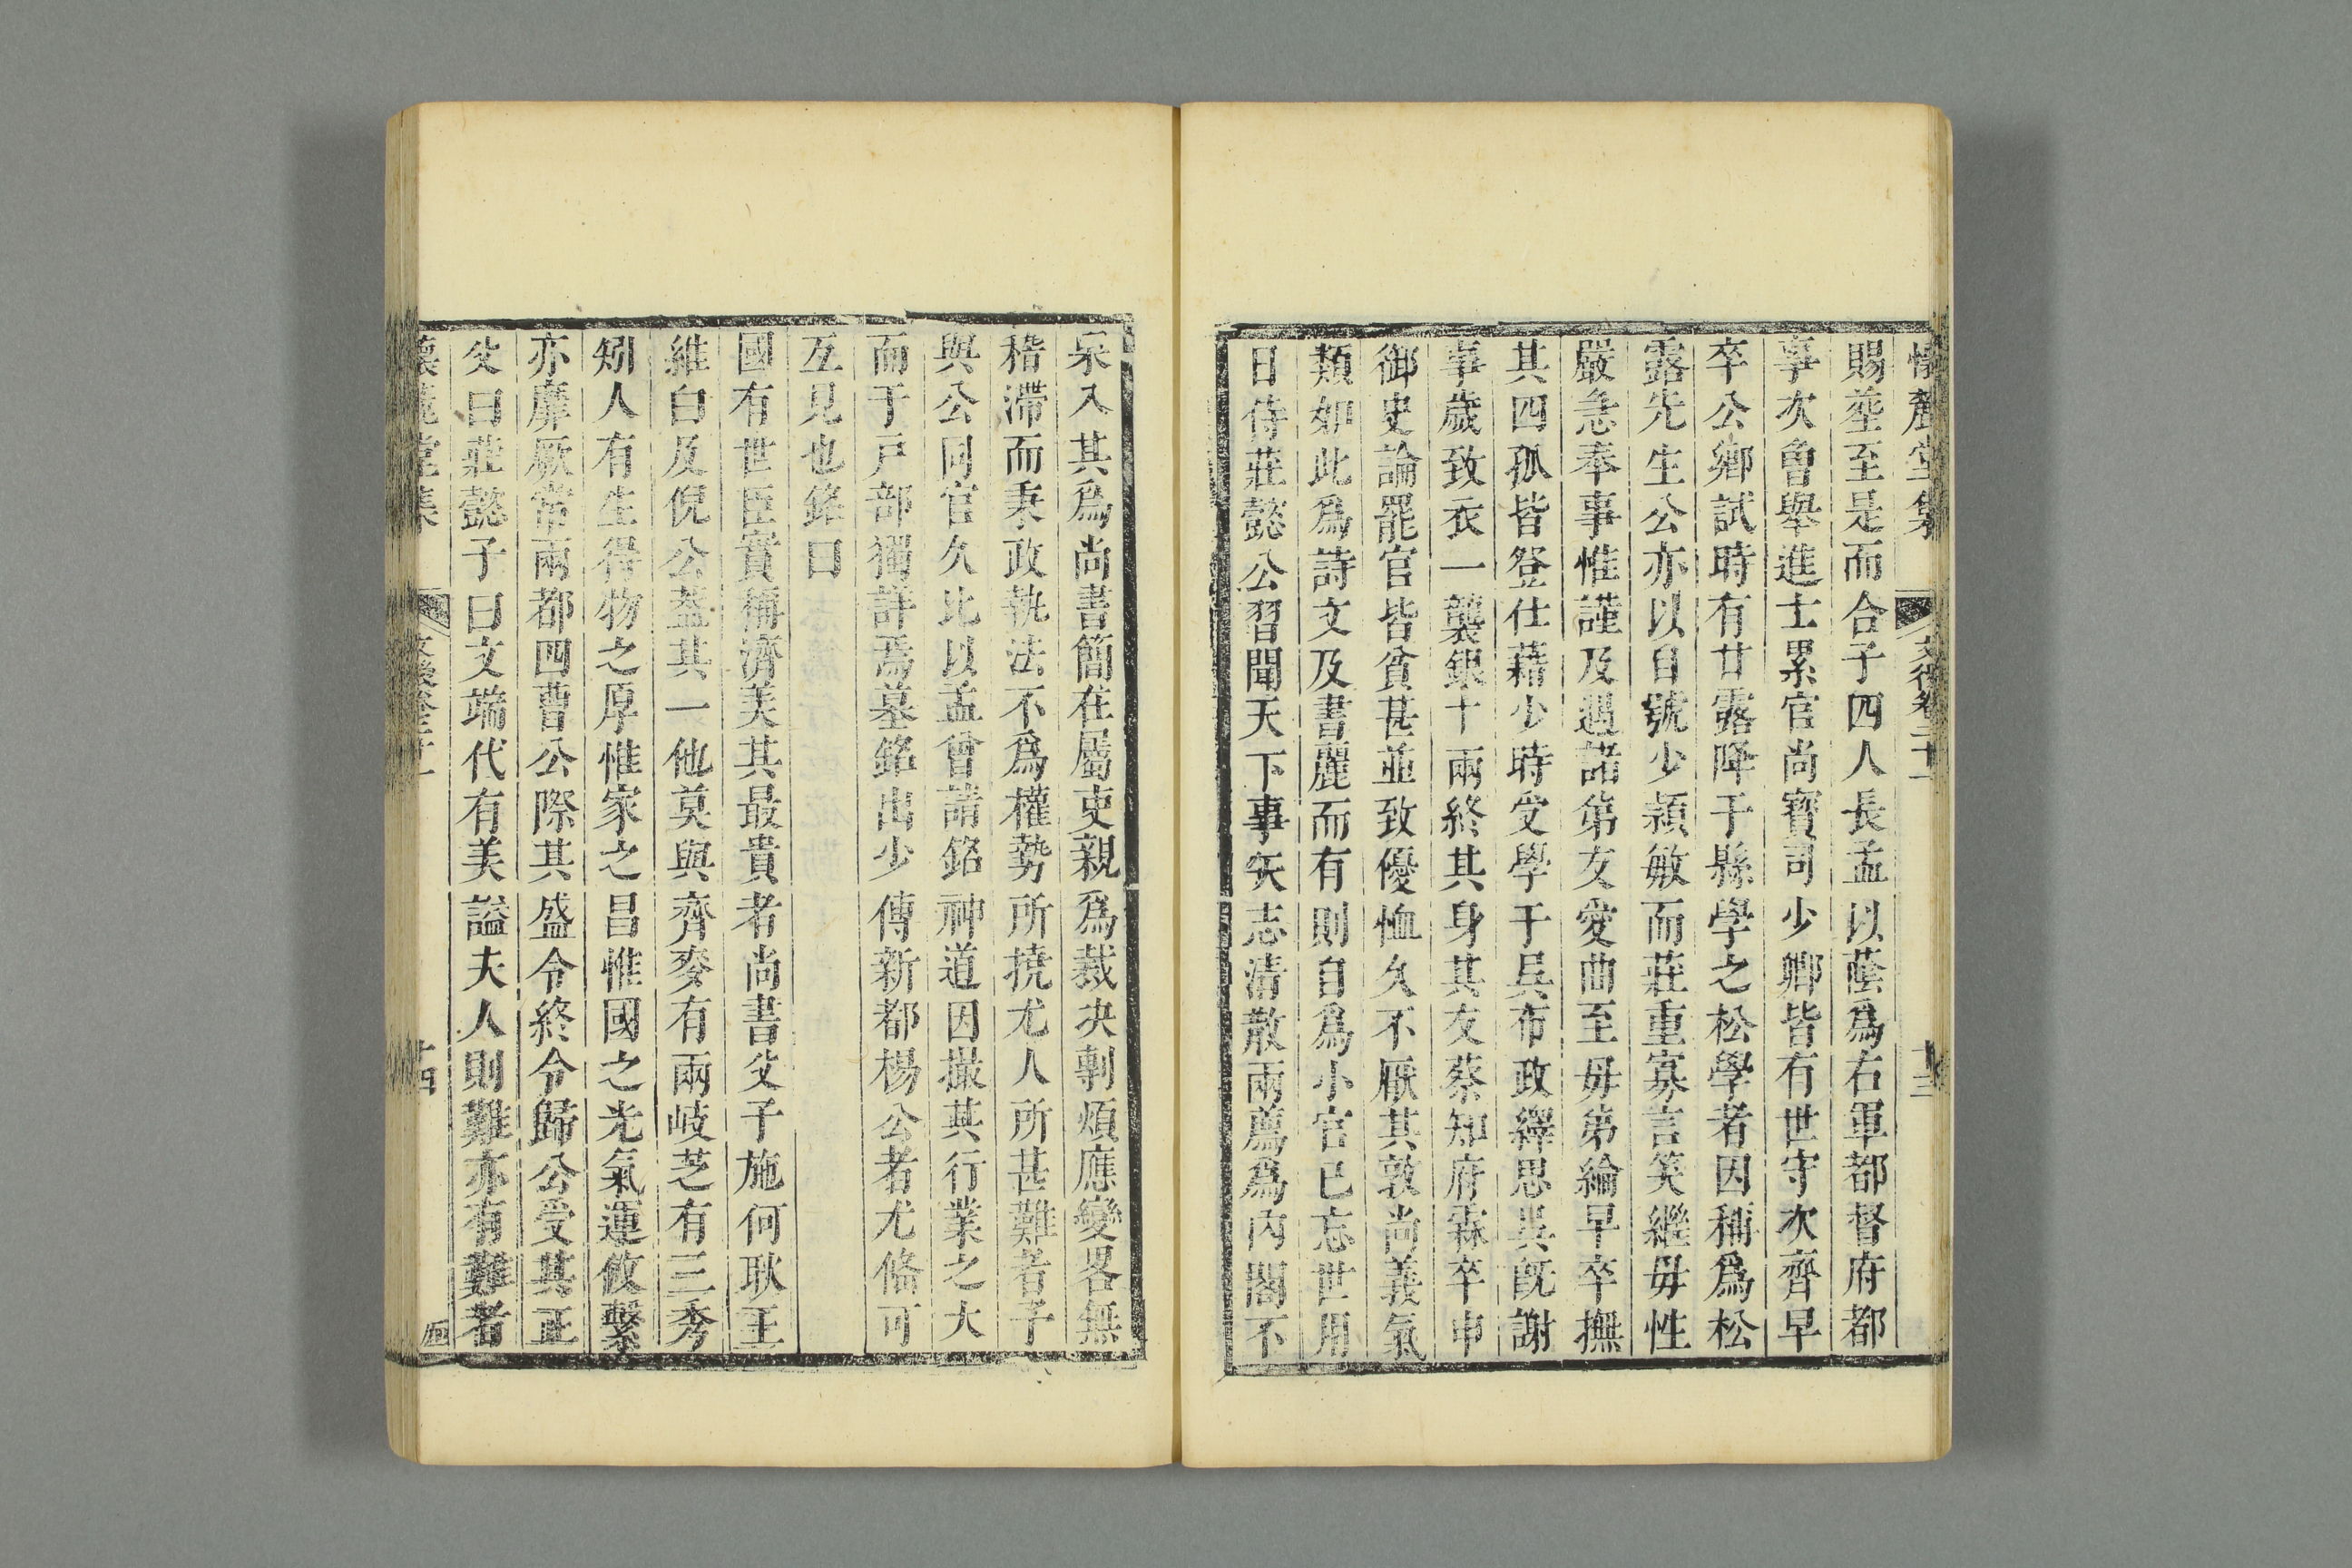 懷麓堂集 文後卷二十一 十三
賜塋至是而合子四人長孟以蔭爲右軍都督府都
事次魯舉進士累官尚寶司少卿皆有世守次齊早
卒公鄉試時有甘露降于縣學之松學者因稱爲松
露先生公亦以自號少穎敏而莊重寡言笑繼毋性
嚴急奉事惟謹及遇諸第友愛曲至毋弟綸早卒撫
其四孤皆登仕藉少時受學于吳布政繹思吳旣謝
事歲致衣一襲銀十兩終其身其友蔡知府霖卒申
御史論罷官皆貧甚並致優恤久不厭其敦尚義氣
類如此爲詩文及書麗而有則自爲小官已忘世用
日侍莊懿公習聞天下事矢志清散兩薦爲内閣不
果入其爲尚書簡在屬吏親爲裁决剸煩應變畧無
稽滯而秉政執法不爲權勢所撓尤人所甚難者予
與公同官久比以孟曾請銘神道因撮其行業之大
而于戸部獨詳焉墓銘出少傳新都楊公者尤偹可
互見也銘曰
國有世臣實稱濟美其最貴者尚書父子施何耿王
維白及倪公葢其一他莫與齊麥有兩岐芝有三秀
矧人有生得物之厚惟家之昌惟國之光氣運攸繫
亦靡厥常兩都四曹公際其盛令終令歸公受其正
父曰莊懿子曰文端代有美謚夫人則難亦有難者
懷麓堂集 文後卷二十一 十四